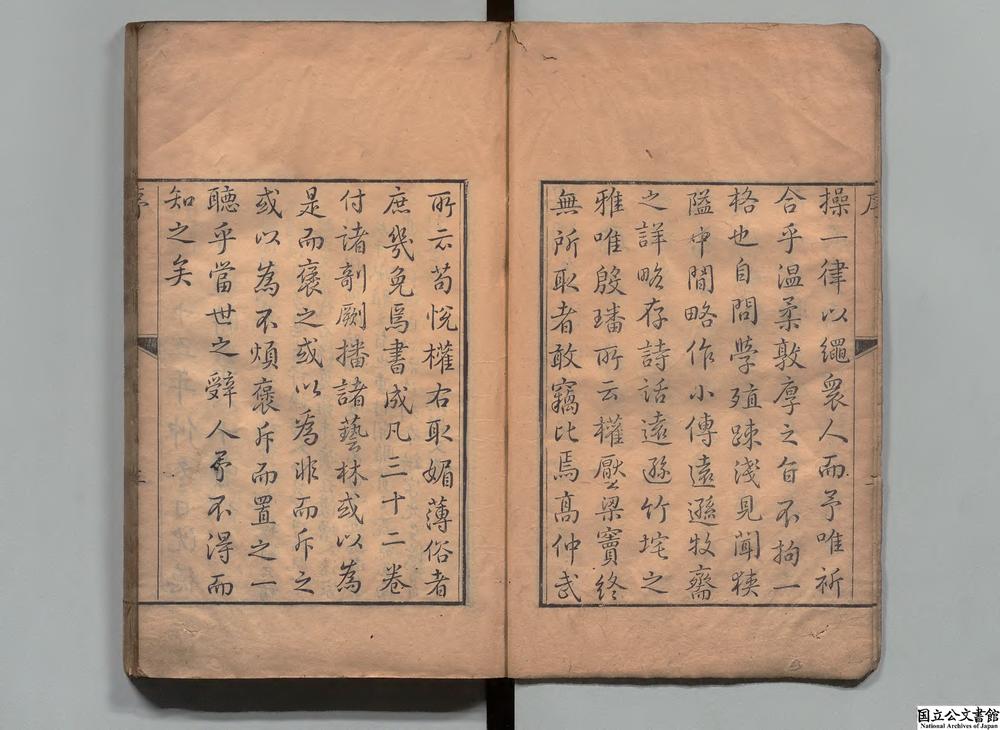 序
操一律以繩衆人而予唯祈
合乎温柔敦厚之旨不拘一
格也自問學殖踈淺見聞狹
隘中間略作小傳遠遜牧齋
之詳略存詩話遠遜竹垞之
雅唯殷璠所云權壓梁竇終
無所取者敢竊比焉髙仲武
所云苟恱權右取媚薄俗者
庶幾免焉書成凡三十二卷
付諸剞劂播諸藝林或以為
是而褒之或以為非而斥之
或以為不煩褒斥而置之一
聽乎當世之辭人予不得而
知之矣
序
国立公文書館
National Archives of Japan